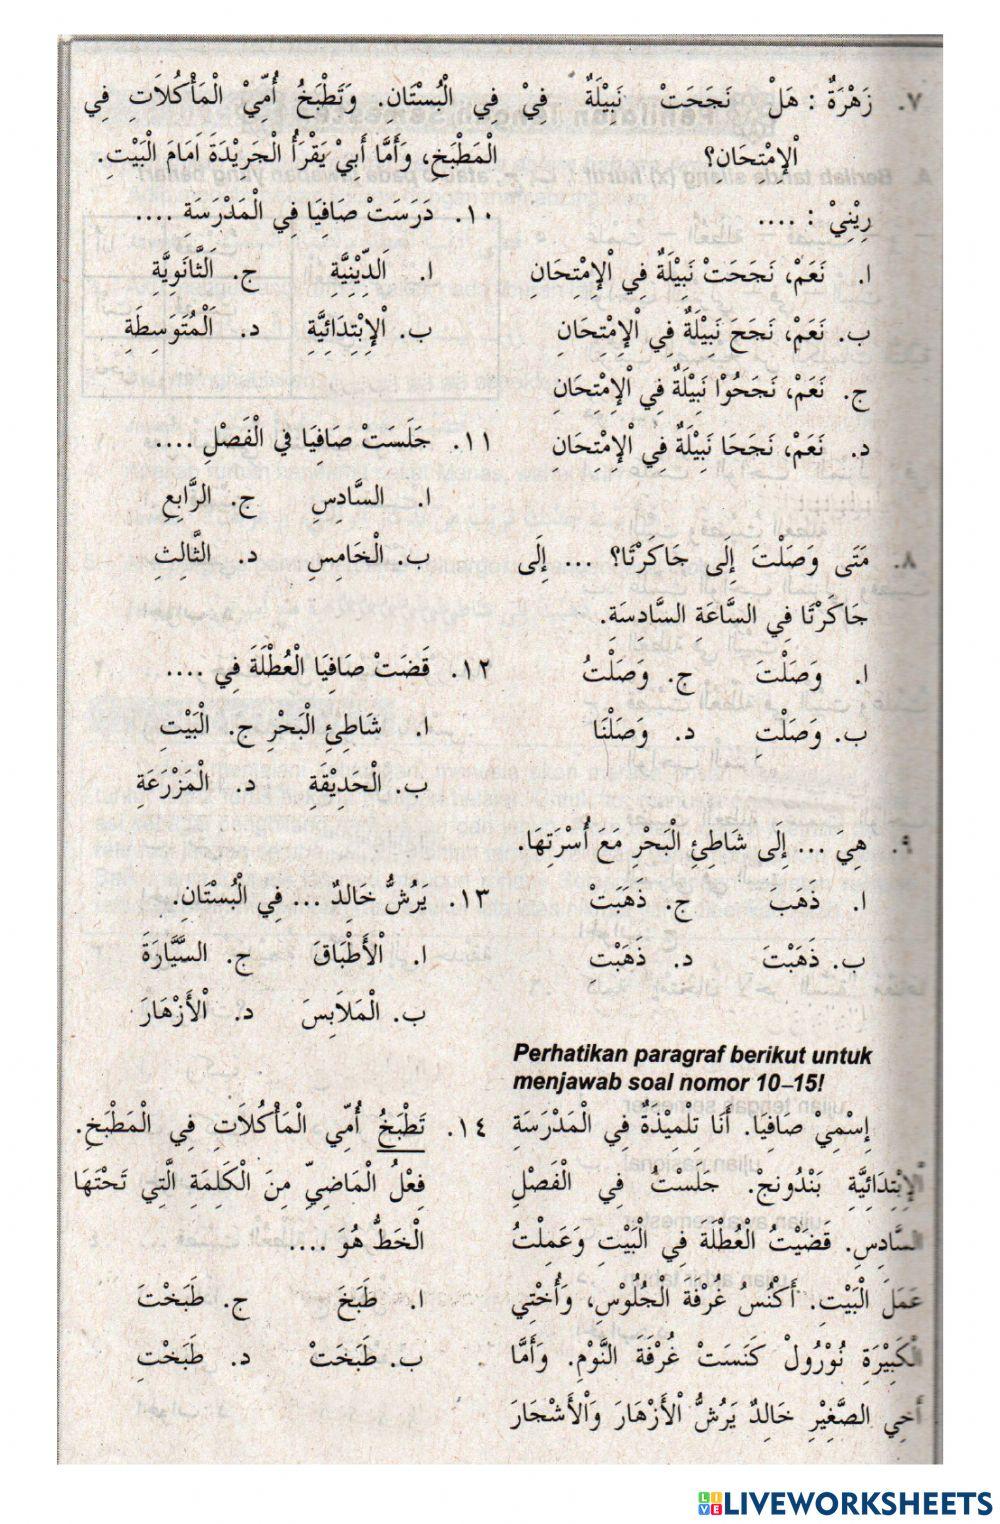 ٧. زَهْرَةٌ : هَلْ نَجَحَتْ نَبِيْلَةٌ فِيْ
الْاِمْتِحَان؟
رِيْنِيْ : ....
ا. نَعَمْ، نَجَحَتْ نَبِيْلَةٌ فِي الْاِمْتِحَانِ
ب. نَعَمْ، نَجَحَ نَبِيْلَةٌ فِي الْاِمْتِحَانِ
ج. نَعَمْ، نَجَحُوْا نَبِيْلَةٌ فِي الْاِمْتِحَانِ
د. نَعَمْ، نَجَحَا نَبِيْلَةٌ فِي الْاِمْتِحَانِ
٨. مَتَى وَصَلْتَ إِلَى جَاكَرْتَا؟ ... إِلَى
جَاكَرْتَا فِي السَّاعَةِ السَّادِسَةِ.
ا. وَصَلْتَ ج. وَصَلْتُ
ب. وَصَلْتِ د. وَصَلْنَا
٩. هِيَ ... إِلَى شَاطِئِ الْبَحْرِ مَعَ أُسْرَتِهَا.
ا. ذَهَبَ ج. ذَهَبَتْ
ب. ذَهَبْتَ د. ذَهَبْتِ
Perhatikan paragraf berikut untuk
menjawab soal nomor 10–15!
إِسْمِيْ صَافِيَا. أَنَا تِلْمِيْذَةٌ فِي الْمَدْرَسَةِ
الْإِبْتِدَائِيَّةِ بَنْدُونج. جَلَسْتُ فِي الْفَصْلِ
السَّادِسِ. قَضَيْتُ الْعُطْلَةَ فِي الْبَيْتِ وَعَمِلْتُ
عَمَلَ الْبَيْتِ. أَكْنُسُ غُرْفَةَ الْجُلُوْسِ، وَأُخْتِي
الْكَبِيْرَةِ نُوْرُولْ كَنَسَتْ غُرْفَةَ النَّوْمِ. وَأَمَّا
أَخِي الصَّغِيْرِ خَالِدٌ يَرُشُّ الْأَزْهَارَ وَالْأَشْجَارَ
فِي الْبُسْتَانِ. وَتَطْبَخُ أُمِّيْ الْمَأْكُلَاتِ فِي
الْمَطْبَخِ، وَأَمَّا أَبِيْ يَقْرَأُ الْجَرِيْدَةَ اَمَامَ الْبَيْتِ.
١٠. دَرَسَتْ صَافِيَا فِي الْمَدْرَسَةِ ....
ا. الدِّيْنِيَّةِ ج. الثَّانَوِيَّةِ
ب. الْاِبْتِدَائِيَّةِ د. الْمُتَوَسِطَةِ
١١. جَلَسَتْ صَافِيَا فِي الْفَصْلِ ....
ا. السَّادِسِ ج. الرَّابِعِ
ب. الْخَامِسِ د. الثَّالِثِ
١٢. قَضَتْ صَافِيَا الْعُطْلَةَ فِي ....
ا. شَاطِئِ الْبَحْرِ ج. الْبَيْتِ
ب. الْحَدِيْقَةِ د. الْمَزْرَعَةِ
١٣. يَرُشُّ خَالِدٌ ... فِي الْبُسْتَانِ.
ا. الْأَطْبَاقَ ج. السَّيَّارَةَ
ب. الْمَلَابِسَ د. الْأَزْهَارَ
١٤. تَطْبَخُ أُمِّي الْمَأْكُلَاتِ فِي الْمَطْبَخِ.
فِعْلُ الْمَاضِيِّ مِنَ الْكَلِمَةِ الَّتِي تَحْتَهَا
الْخَطُّ هُوَ ....
ا. طَبَخَ ج. طَبَخْتَ
ب. طَبَخَتْ د. طَبَخْتِ
LIVEWORKSHEETS